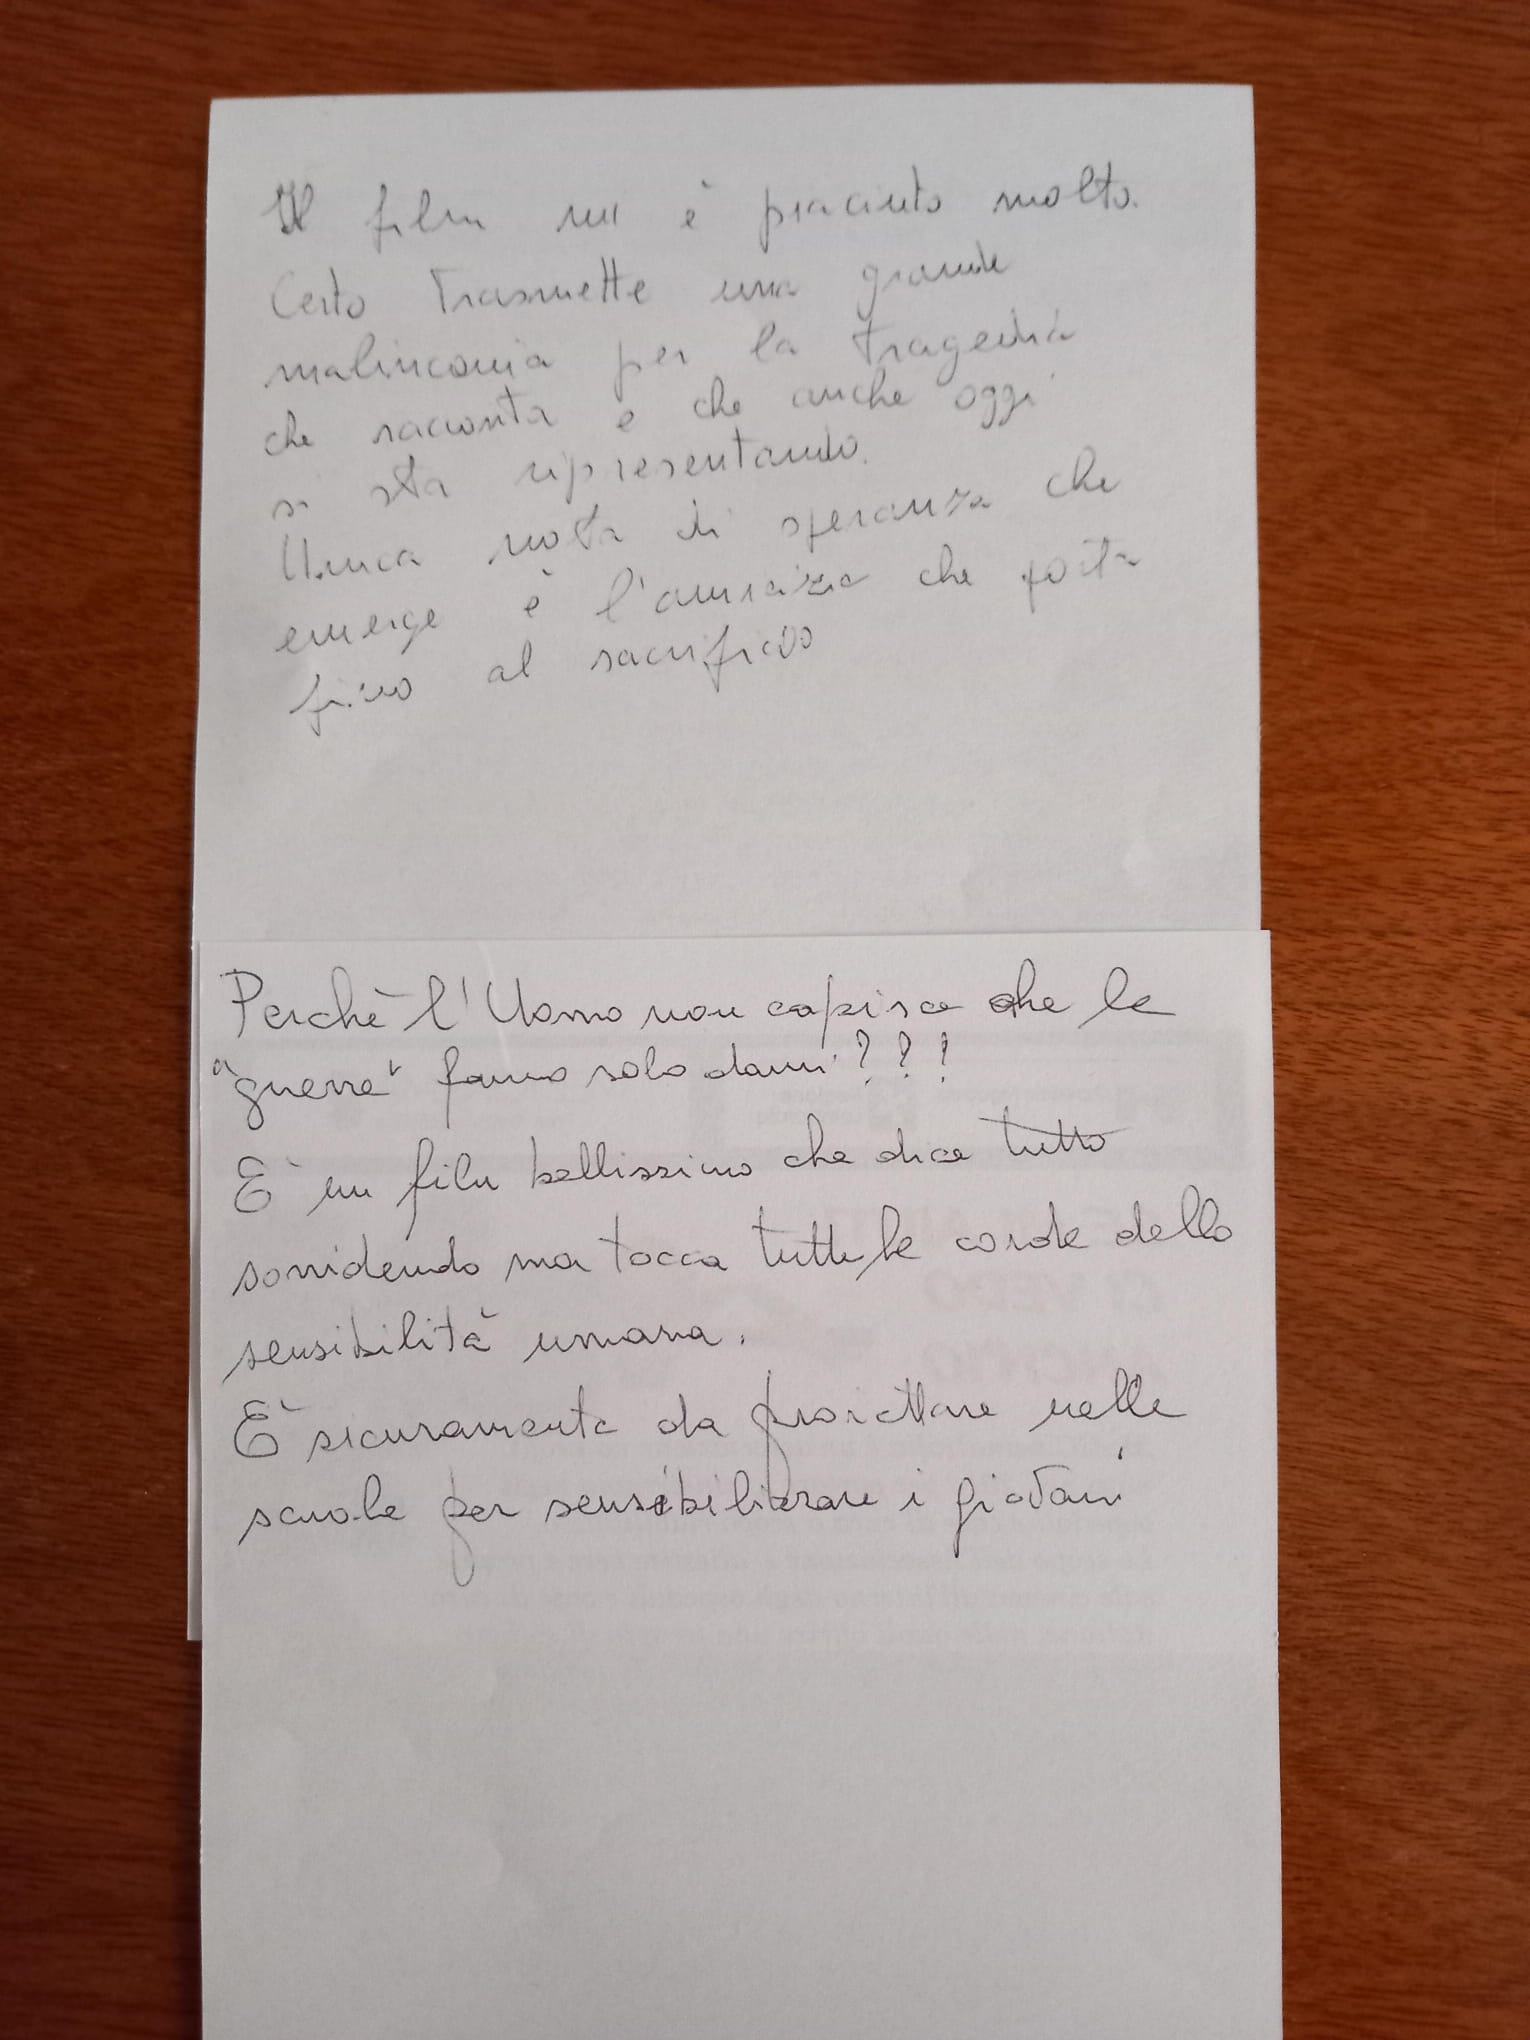 Il film mi è piaciuto molto.
Certo trasmette una grande
malinconia per la tragedia
che racconta e che anche oggi
si sta ripresentando.
Unica nota di speranza che
emerge è l'amicizia che porta
fino al sacrificio
Perchè l'Uomo non capisce che le
"guerre" fanno solo danni???
È un film bellissimo che dice tutto
sorridendo ma tocca tutte le corde della
sensibilità umana.
È sicuramente da proiettare nelle
scuole per sensibilizzare i giovani